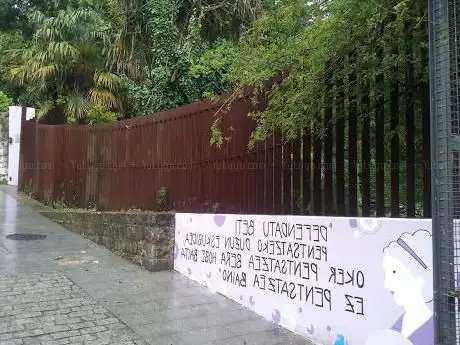 "DEFENDATU BETI
PENTSATZEKO DUZUN ESKUBIDEA
OKER PENTSATZEA BERA HOBE BAITA
EZ PENTSATZEA BAINO"